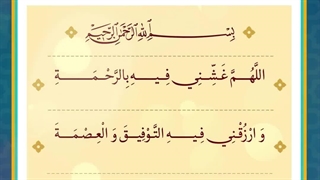 بِسْمِ اللهِ الرَّحْمٰنِ الرَّحِيْمِ
اللَّهُمَّ غَشِّنِي فِيهِ بِالرَّحْمَةِ
وَ ارْزُقْنِي فِيهِ التَّوْفِيقَ وَ الْعِصْمَةَ